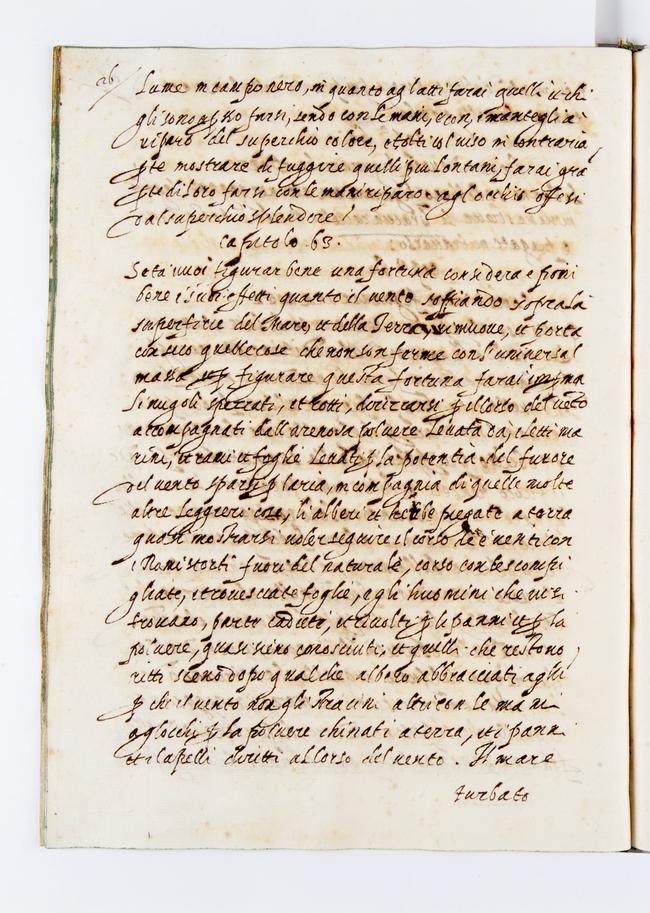 26
Lume in campo nero, in quanto agl'atti farai quelli et chi
gli sono apresso farsi, sendo con le mani, e con i mantegli a
riparo del superchio colore, e volti col viso in contraria
pte mostrare di fuggire quelli piu lontani, farai gra
pte di loro farsi con le mani riparo agl'occhi offesi
dal superchio splendore /
Capatolo .63.
Se tu vuoi figurar bene una fortuna considera e poni
bene i suoi effetti quanto il vento soffiando sopra la
superficie del Mare, et della Terra, rimuove, et porta
con seco quelle cose che non son ferme con l'universal
massa et p figurare questa fortuna farai ma
li nugoli spezzati, et rotti, dirizzarsi p il corso del veto
accompagnati dall'arenosa poluere levata da i letti ma
rini, et rami et foglie levati p la potentia del furore
del vento sparsi p l'aria, in compagnia di quelle molte
altre leggieri cose, li alberi et herbe piegate a terra
quasi mostrarsi voler seguire il corso de e venti con
i Rami storti fuori del naturale, corso con le scompi
gliate, et rovesciate foglie, e gli huomini che vi si
trovano, parte caduti, et rivolti p li panni et p la
poluere, quasi sieno conosciuti, et quelli che restono
ritti sieno dopo qualche albero abbracciati agli
p che il vento non gli stracini altri con le mani
aglocchi p la poluere chinati a terra, et i panni
et i capelli diritti al corso del vento . Il mare
turbato